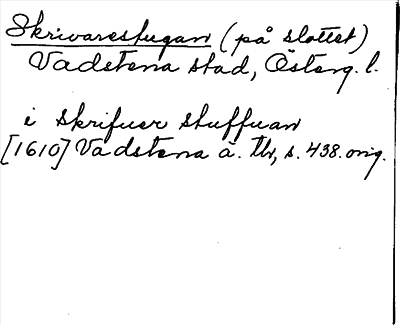 Skrivarestugan (på slottet)
Vadstena stad, Österg. l.
i skrifuer stuffuan
[1610] Vadstena ä. tb, s. 438. orig.